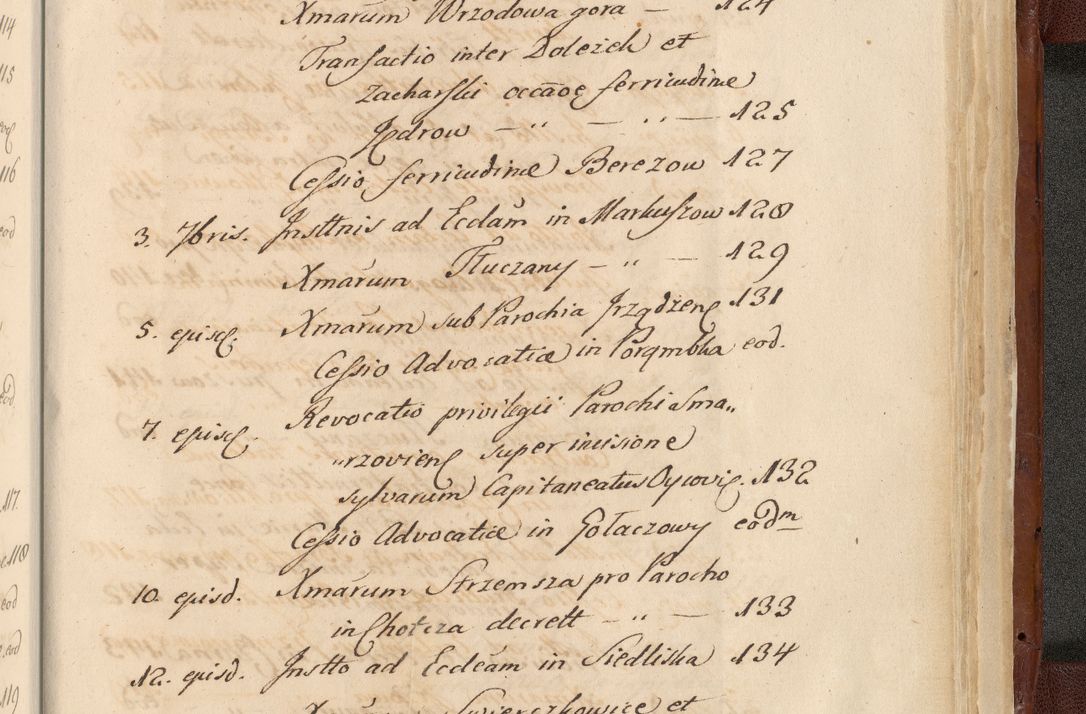 114
115
116
eod
eod
117.
118
eod
eod
119
Xmarum Wrzodowa gora — 124
Transactio inter Doleżek et
Zacharski occãoe ferricudinæ
Jędrow — " — " — 125
Cessio ferricudinæ Berezow 127
3. 7bris. Insttnis ad Ecclam in Markuszow 128
Xmarum Tłuczany — " — 129
5. episd. Xmarum sub Parochia Jrządzen 131
Cessio Advocatiæ in Porąmbka eod.
7. episd. Revocatio privilegii Parochi Sma„
„rzovien super incisione
sylvarum Capitaneatus Oycovi. 132
Cessio Advocatiæ in Gołaczowy eodm
10. episd. Xmarum Strzemsza pro Parocho
in Chotcza decrett — " — 133
12. episd. Instto ad Eccleam in Siedliska 134
Xmarum Swierczkowice et